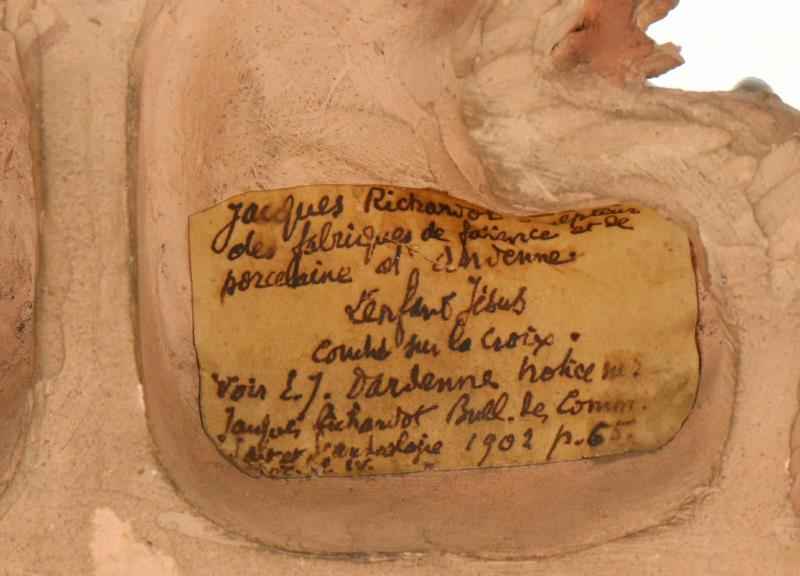 Jacques Richardot
des fabriques de faïence et de
porcelaine d'Andenne.
L'enfant Jésus
couché sur la croix.
Voir E. J. Dardenne notice
Jacques Richardot Bull. des Comm.
d'art et d'archéologie 1902 p. 65.